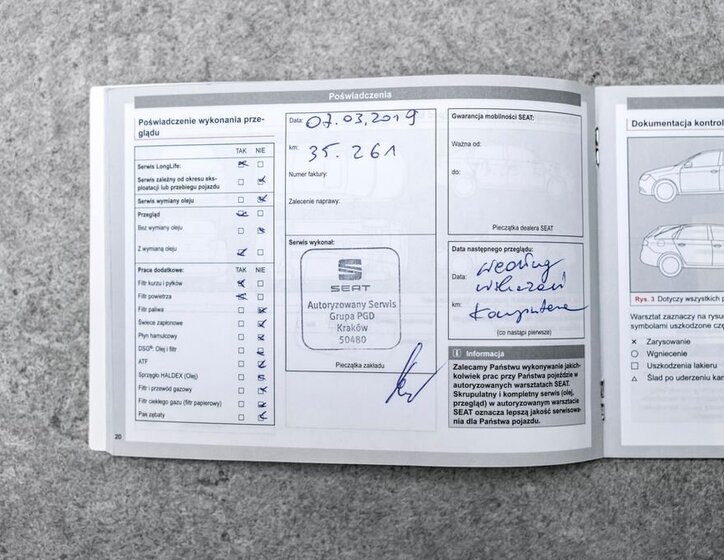 Poświadczenia
Poświadczenie wykonania prze-
glądu
TAK NIE
Serwis LongLife:
Serwis zależny od okresu eks-
ploatacji lub przebiegu pojazdu
Serwis wymiany oleju
Przegląd
Bez wymiany oleju
Z wymianą oleju
TAK NIE
Prace dodatkowe:
Filtr kurzu i pyłków
Filtr powietrza
Filtr paliwa
Świece zapłonowe
Płyn hamulcowy
DSG®: Olej i filtr
ATF
Sprzęgło HALDEX (Olej)
Filtr i przewód gazowy
Filtr ciekłego gazu (filtr papierowy)
Pas zębaty
20
Data: 07.03.2019
km: 35.261
Numer faktury:
Zalecenie naprawy:
Serwis wykonał:
SEAT
Autoryzowany Serwis
Grupa PGD
Kraków
50480
Pieczątka zakładu
Gwarancja mobilności SEAT:
Ważna od:
do:
Pieczątka dealera SEAT
Data następnego przeglądu:
Data: według
wskazań
km: komputera
(co nastąpi pierwsze)
i Informacja
Zalecamy Państwu wykonywanie jakich-
kolwiek prac przy Państwa pojeździe w
autoryzowanych warsztatach SEAT.
Skrupulatny i kompletny serwis (olej,
przegląd) w autoryzowanym warsztacie
SEAT oznacza lepszą jakość serwisowa-
nia dla Państwa pojazdu.
Dokumentacja kontrol
Rys. 3 Dotyczy wszystkich p
Warsztat zaznaczy na rysu
symbolami uszkodzone czę
× Zarysowanie
○ Wgniecenie
□ Uszkodzenia lakieru
△ Ślad po uderzeniu kam